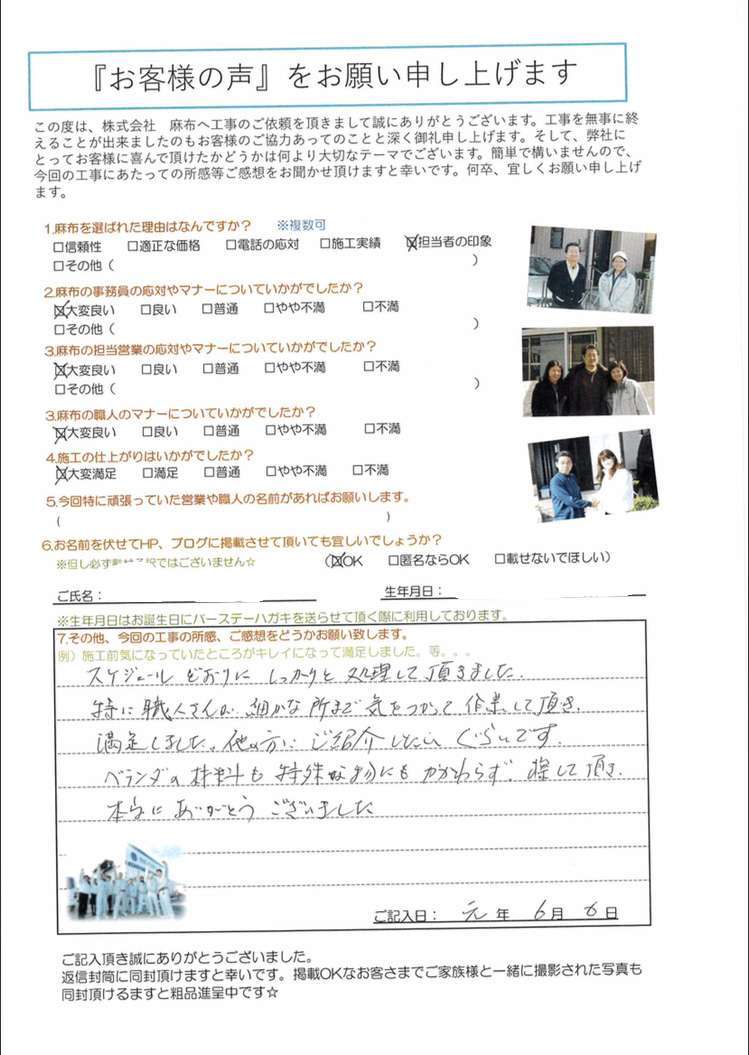 『お客様の声』をお願い申し上げます
この度は、株式会社　麻布へ工事のご依頼を頂きまして誠にありがとうございます。工事を無事に終
えることが出来ましたのもお客様のご協力あってのことと深く御礼申し上げます。そして、弊社に
とってお客様に喜んで頂けたかどうかは何より大切なテーマでございます。簡単で構いませんので、
今回の工事にあたっての所感等ご感想をお聞かせ頂けますと幸いです。何卒、宜しくお願い申し上げ
ます。
1.麻布を選ばれた理由はなんですか？　※複数可
□信頼性　□適正な価格　□電話の応対　□施工実績　☒担当者の印象
□その他（　）
2.麻布の事務員の応対やマナーについていかがでしたか？
☒大変良い　□良い　□普通　□やや不満　□不満
□その他（　）
3.麻布の担当営業の応対やマナーについていかがでしたか？
☒大変良い　□良い　□普通　□やや不満　□不満
□その他（　）
3.麻布の職人のマナーについていかがでしたか？
☒大変良い　□良い　□普通　□やや不満　□不満
4.施工の仕上がりはいかがでしたか？
☒大変満足　□満足　□普通　□やや不満　□不満
5.今回特に頑張っていた営業や職人の名前があればお願いします。
（　）
6.お名前を伏せてHP、ブログに掲載させて頂いても宜しいでしょうか？
※但し必ず ではございません☆　（☒OK　□匿名ならOK　□載せないでほしい）
ご氏名：　生年月日：
※生年月日はお誕生日にバースデーハガキを送らせて頂く際に利用しております。
7.その他、今回の工事の所感、ご感想をどうかお願い致します。
例）施工前気になっていたところがキレイになって満足しました。等。。。
スケジュールどおりに しっかりと 処理して頂きました.
特に職人さんが 細かな所まで 気をつかって 作業して頂き.
満足しました。他の方に ご紹介したい ぐらいです.
ベランダの材料も 特殊な にもかかわらず. 探して頂き.
本当に ありがとう ございました
ご記入日：元年 6月 8日
ご記入頂き誠にありがとうございました。
返信封筒に同封頂けますと幸いです。掲載OKなお客さまでご家族様と一緒に撮影された写真も
同封頂けるますと粗品進呈中です☆